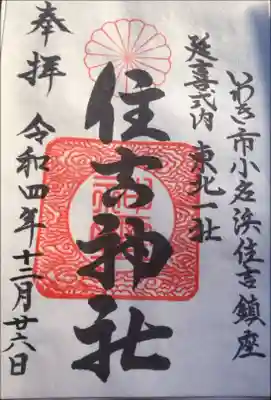 いわき市小名浜住吉鎮座
延喜式内 東北一社
住吉神社
奉拝
令和四年十二月廿六日